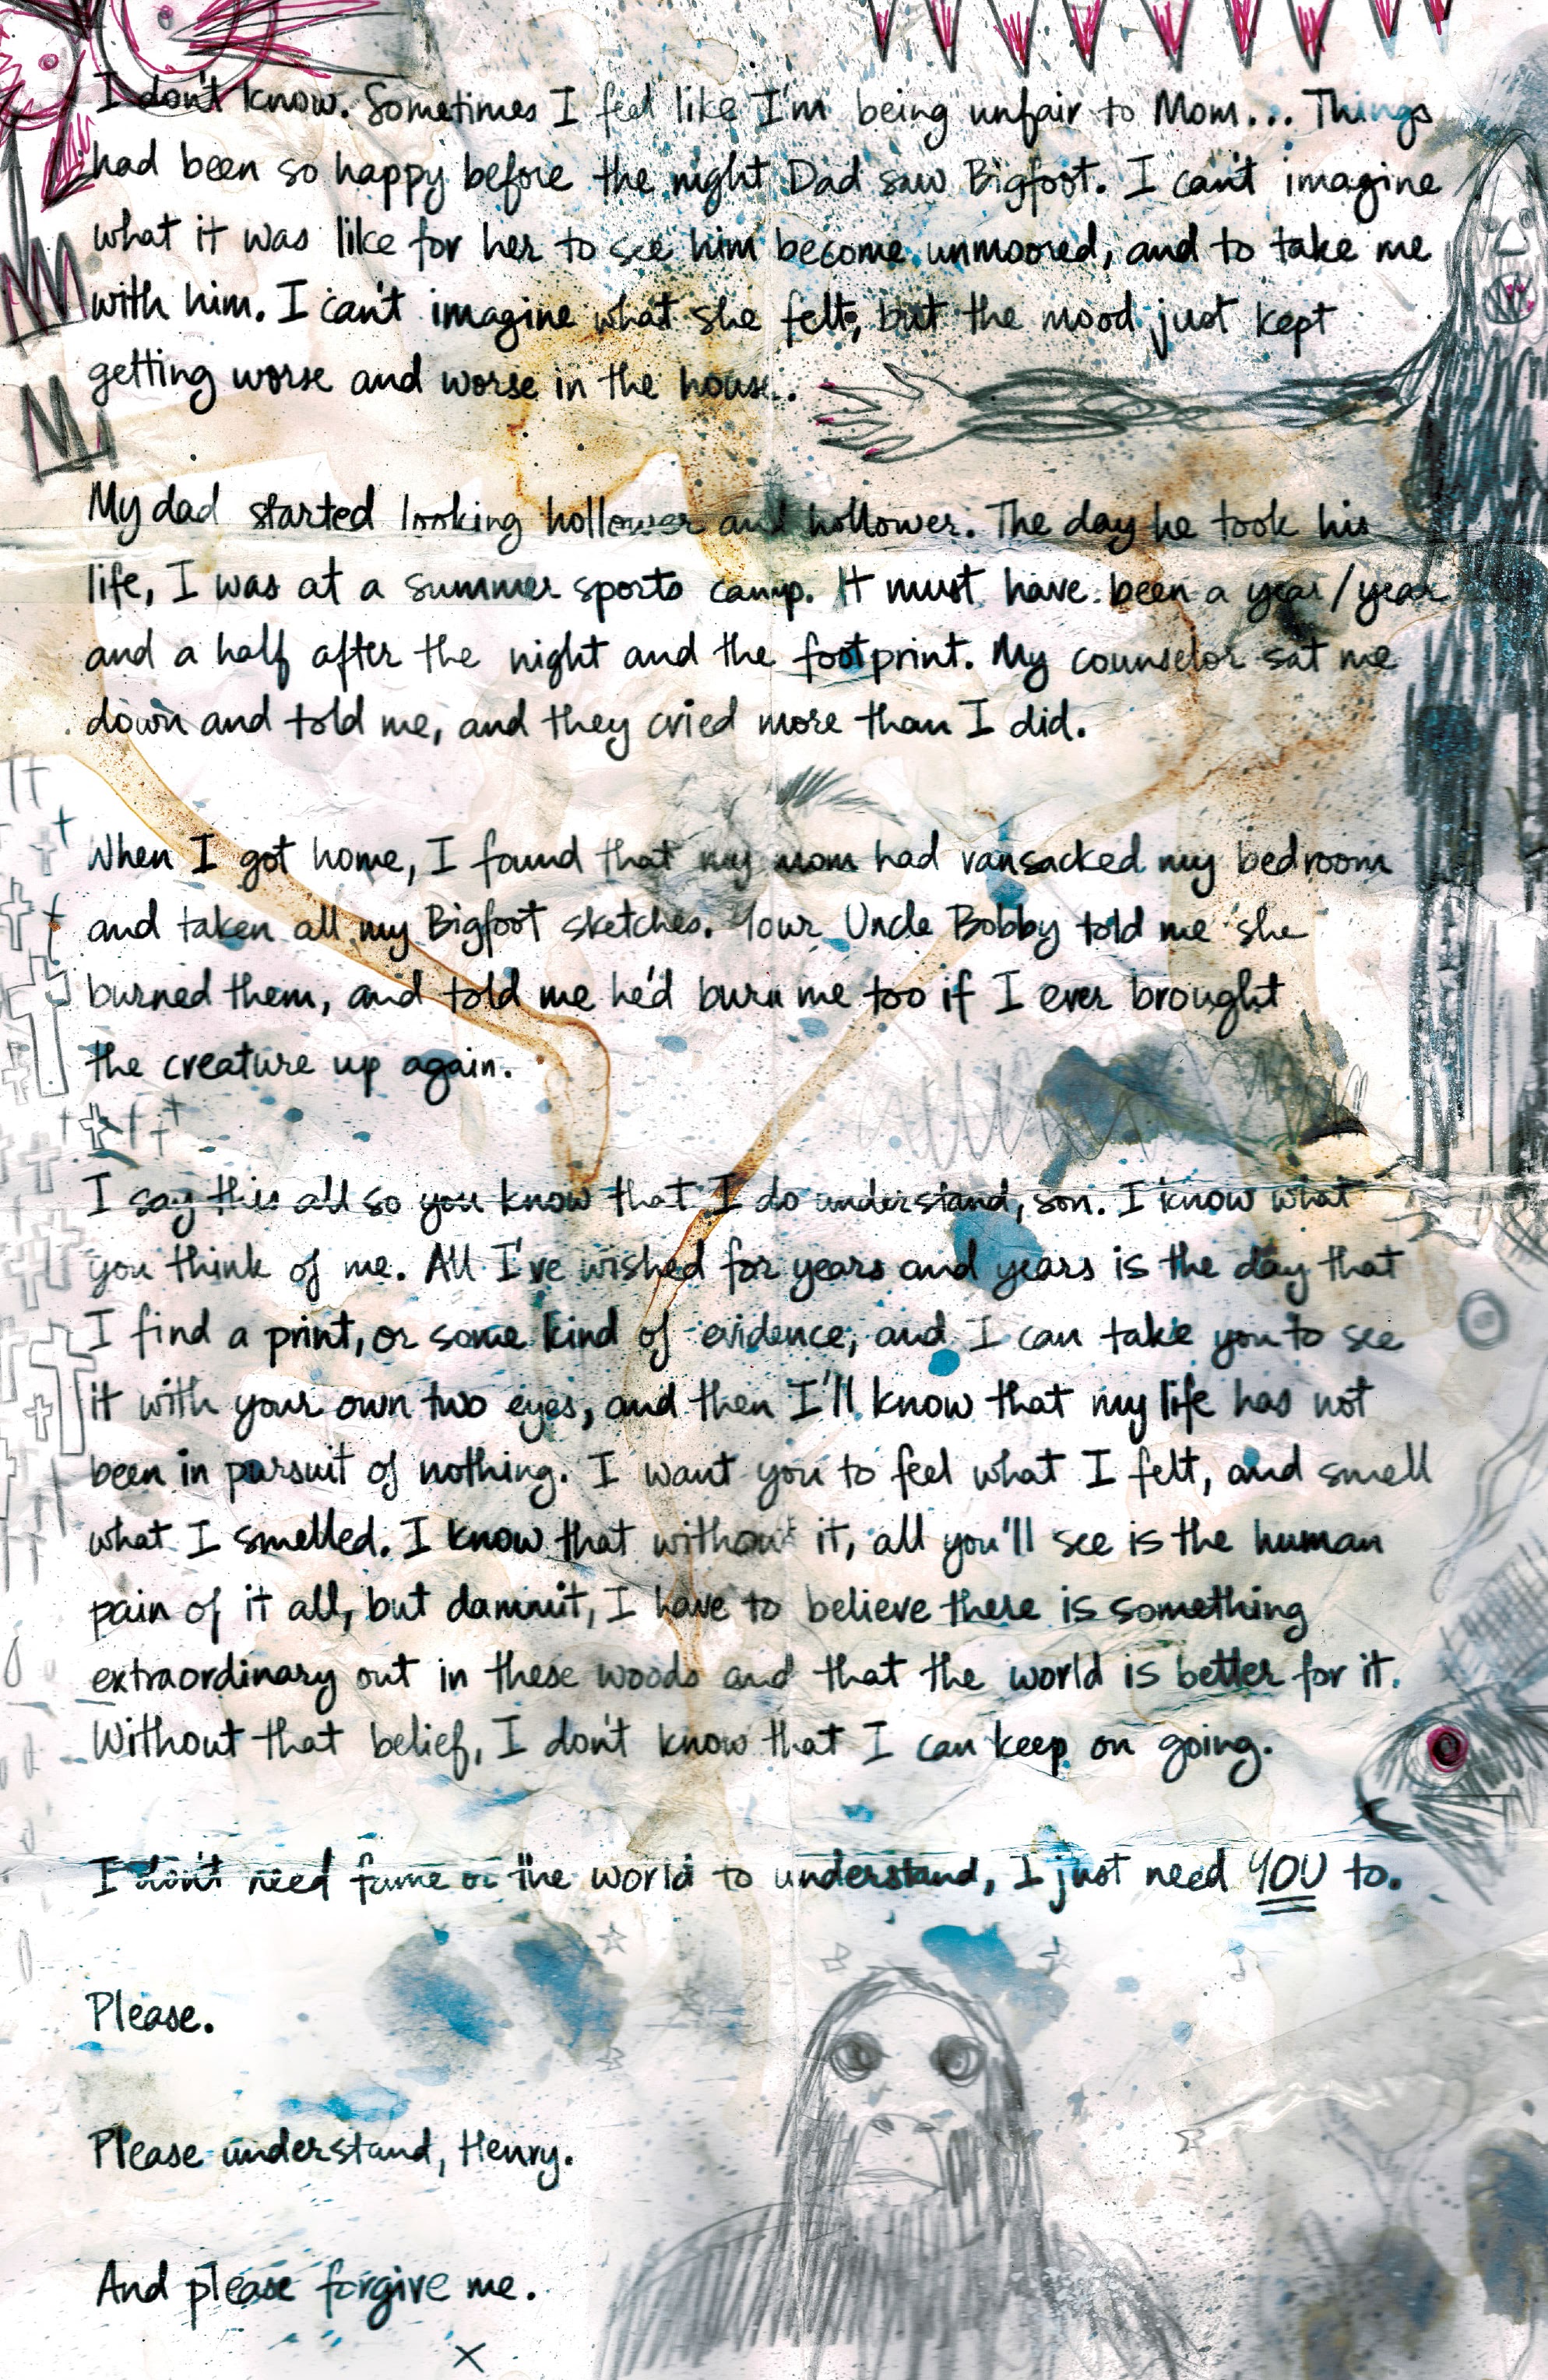 I don't know. Sometimes I feel like I'm being unfair to Mom... Things
had been so happy before the night Dad saw Bigfoot. I can't imagine
what it was like for her to see him become unmoored, and to take me
with him. I can't imagine what she felt, but the mood just kept
getting worse and worse in the house.
My dad started looking hollower and hollower. The day he took his
life, I was at a summer sports camp. It must have been a year/year
and a half after the night and the footprint. My counselor sat me
down and told me, and they cried more than I did.
When I got home, I found that my mom had ransacked my bedroom
and taken all my Bigfoot sketches. Your Uncle Bobby told me she
burned them, and told me he'd burn me too if I ever brought
the creature up again.
I say this all so you know that I do understand, son. I know what
you think of me. All I've wished for years and years is the day that
I find a print, or some kind of evidence, and I can take you to see
it with your own two eyes, and then I'll know that my life has not
been in pursuit of nothing. I want you to feel what I felt, and smell
what I smelled. I know that without it, all you'll see is the human
pain of it all, but damnit, I have to believe there is something
extraordinary out in these woods and that the world is better for it.
Without that belief, I don't know that I can keep on going.
I don't need fame or the world to understand, I just need YOU to.
Please.
Please understand, Henry.
And please forgive me.
X